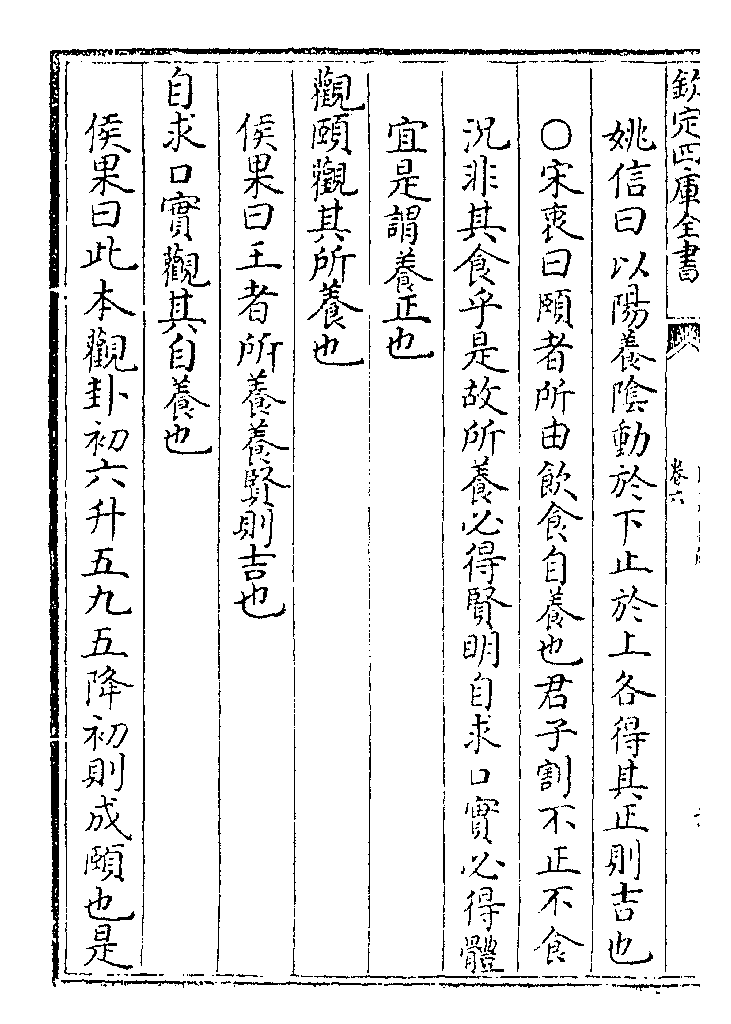 欽定四庫全書
卷六
姚信曰以陽養陰動於下止於上各得其正則吉也
○宋衷曰頤者所由飲食自養也君子割不正不食
況非其食乎是故所養必得賢明自求口實必得體
宜是謂養正也
觀頤觀其所養也
侯果曰王者所養養賢則吉也
自求口實觀其自養也
侯果曰此本觀卦初六升五九五降初則成頤也是